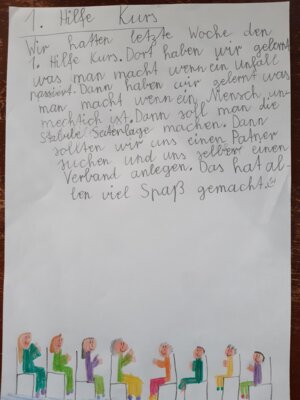 1. Hilfe Kurs
Wir hatten letzte Woche den
1. Hilfe Kurs. Dort haben wir gelernt
was man macht wenn ein Unfall
passiert. Dann haben wir gelernt was
man macht wenn ein Mensch un-
mechtlich ist. Dann soll man die
Stabile Satenlage machen. Dann
sollten wir uns einen Patner
suchen und uns selber einen
Verband anlegen. Das hat al-
len viel Spaß gemacht.